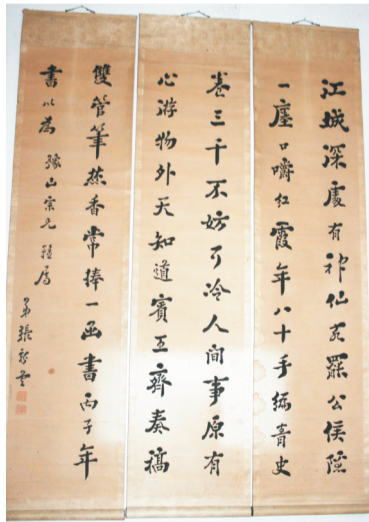 江城深處有神仙罷公侯隱
一廛口嚼紅霞年八十手編青史
卷三千不妨冷人間事原有
心游物外天知道賓王齊奏稿
雙管筆香常捧一函書丙子年
書以為豫山宗兄雅屬
弟張